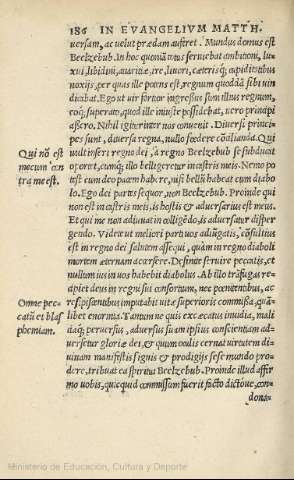 186 IN EVANGELIVM MATTH.
uersam, ac uelut prædam aufert. Mundus domus est
Beelzebub. In hoc quoniam
luxui, libidini, auaritiæ, iræ, liuori, cæterisq́; cupiditatibus
noxijs, per quas ille potens est, regnum quoddã sibi uin
dicabat. Ego ut uir fortior ingressus sum illius regnum,
eoq́; superato, quod ille iniuste possidebat, uero principi
assero. Nihil igitur inter nos conuenit. Diuersi princi-
pes sunt, diuersa regna, nullo fœdere cõalianda. Qui
Qui nõ est
mecum cõn
tra me est.
uult inseri regno dei, à regno Beelzebub se subducat
oportet, cumq́; illo belligeretur in castris meis. Nemo po
test cum deo pacem habere, nisi bellũ habeat cum diabo
lo. Ego dei partes sequor, non Beelzebub. Proinde qui
non est in castris meis, is hostis & aduersarius est meus.
Et qui me non adiuuat in colligẽdo, is aduersatur disper
gendo. Videte ut meliori parti uos adiũgatis, cõsultius
est in regno dei salutem assequi, quàm in regno diaboli
mortem æternam accersere. Desinite seruire peccatis, et
nullum ius in uos habebit diabolus. Ab illo trãsfugas re-
cipiet deus in regni sui consortium, nec pœnitentibus, ac
Omne pec-
catũ et blas
phemiam.
resipiscentibus imputabit uitæ superioris commissa, quã-
libet enormia. Tantum ne quis excæcatus inuidia, mali
tiaq́; peruersus, aduersus suam ipsius conscientiam ad-
uersetur gloriæ dei, & quum oculis cernat uirtutem di-
uinam manifestis signis & prodigijs sese mundo pro-
dere, tribuat ea spiritui Beelzebub. Proinde illud affir
mo uobis, quicquid commissum fuerit facto dictoue, con-
dona-
Ministerio de Educación, Cultura y Deporte